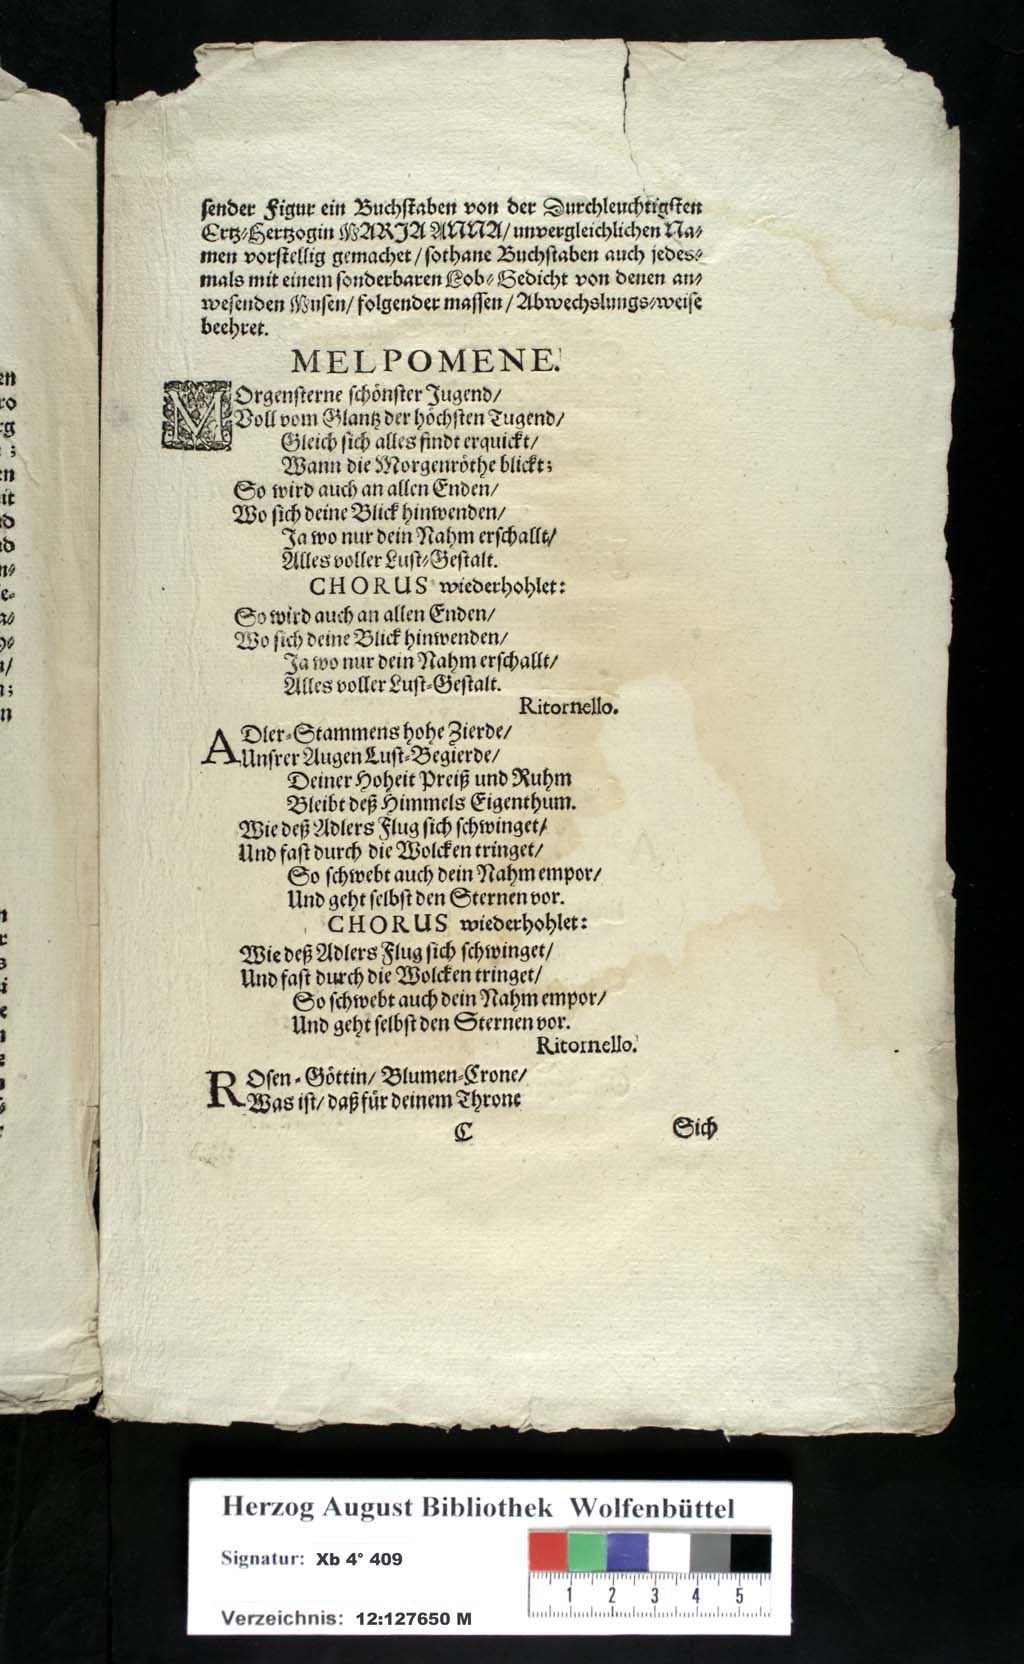 sender Figur ein Buchstaben von der Durchleuchtigsten
Ertz-Hertzogin MARIA ANNA/ unvergleichlichen Na-
men vorstellig gemachet/ sothane Buchstaben auch jedes-
mals mit einem sonderbaren Lob-Gedicht von denen an-
wesenden Musen/ folgender massen/ Abwechslungs-weise
beehret.
MELPOMENE.
MOrgensterne schönster Jugend/
Voll vom Glantz der höchsten Tugend/
Gleich sich alles findt erquickt/
Wann die Morgenröthe blickt;
So wird auch an allen Enden/
Wo sich deine Blick hinwenden/
Ja wo nur dein Nahm erschallt/
Alles voller Lust-Gestalt.
CHORUS wiederhohlet:
So wird auch an allen Enden/
Wo sich deine Blick hinwenden/
Ja wo nur dein Nahm erschallt/
Alles voller Lust-Gestalt.
Ritornello.
ADler-Stammens hohe Zierde/
Unsrer Augen Lust-Begierde/
Deiner Hoheit Preiß und Ruhm
Bleibt deß Himmels Eigenthum.
Wie deß Adlers Flug sich schwinget/
Und fast durch die Wolcken tringet/
So schwebt auch dein Nahm empor/
Und geht selbst den Sternen vor.
CHORUS wiederhohlet:
Wie deß Adlers Flug sich schwinget/
Und fast durch die Wolcken tringet/
So schwebt auch dein Nahm empor/
Und geht selbst den Sternen vor.
Ritornello.
ROsen-Göttin/ Blumen-Crone/
Was ist/ daß für deinem Throne
C Sich
Herzog August Bibliothek Wolfenbüttel
Signatur: Xb 4° 409
1 2 3 4 5
Verzeichnis: 12:127650 M